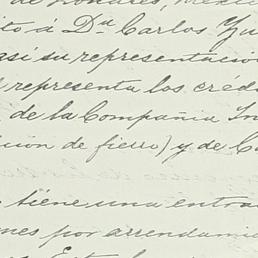 de Londres,
ito á Dn Carlos
así su representación
representa los crédi
de la Compañia In
ción de fierro) y de C
tiene una entra
nes por arrendami